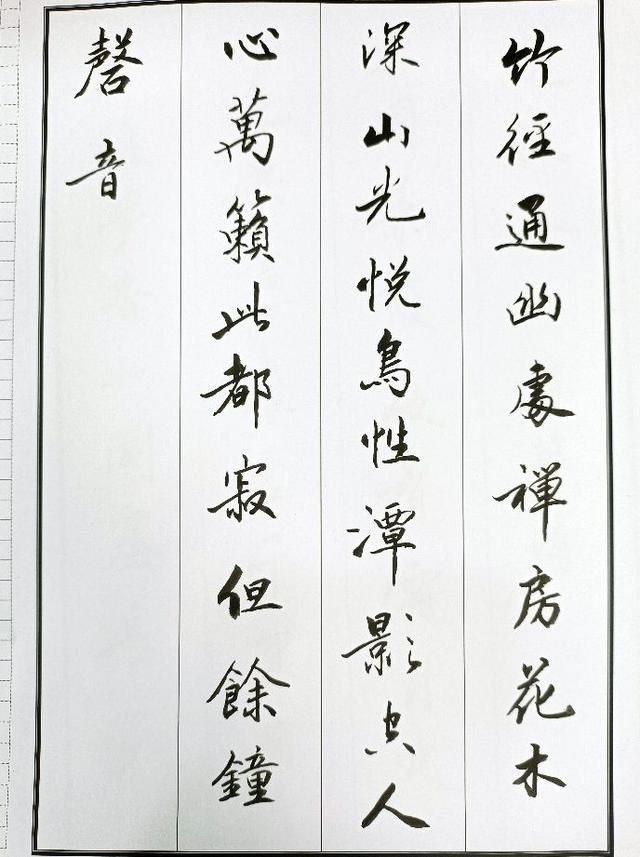 竹徑通幽處禪房花木
深山光悦鳥性潭影空人
心萬籟此都寂但餘鐘
磬音